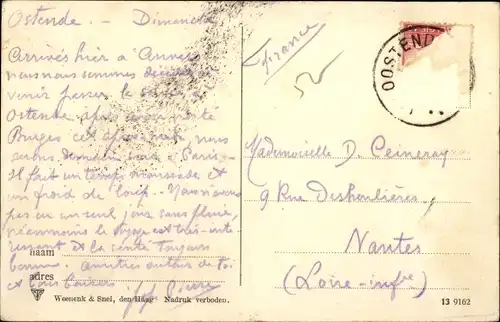 Ostende. - Dimanche
Arrivés hier à Anvers
nous nous sommes décidés
venir passer la
Ostende après avoir visité
Bruges cet après midi nous
serons demain soir à Paris -
Il fait un temps maussade et
un froid de loup. Nous n'avons
pas eu un seul jour sans pluie,
néanmoins le voyage est très inté-
ressant et la santé toujours
bonne. Amitiés autour de toi
et bons baisers Pierre
(France)
52
OOSTEND
Mademoiselle D. Ceineray
9 Rue Deshoulières
Nantes
(Loire-infre)
naam
adres
Weenenk & Snel, den Haag Nadruk verboden.
13 9162